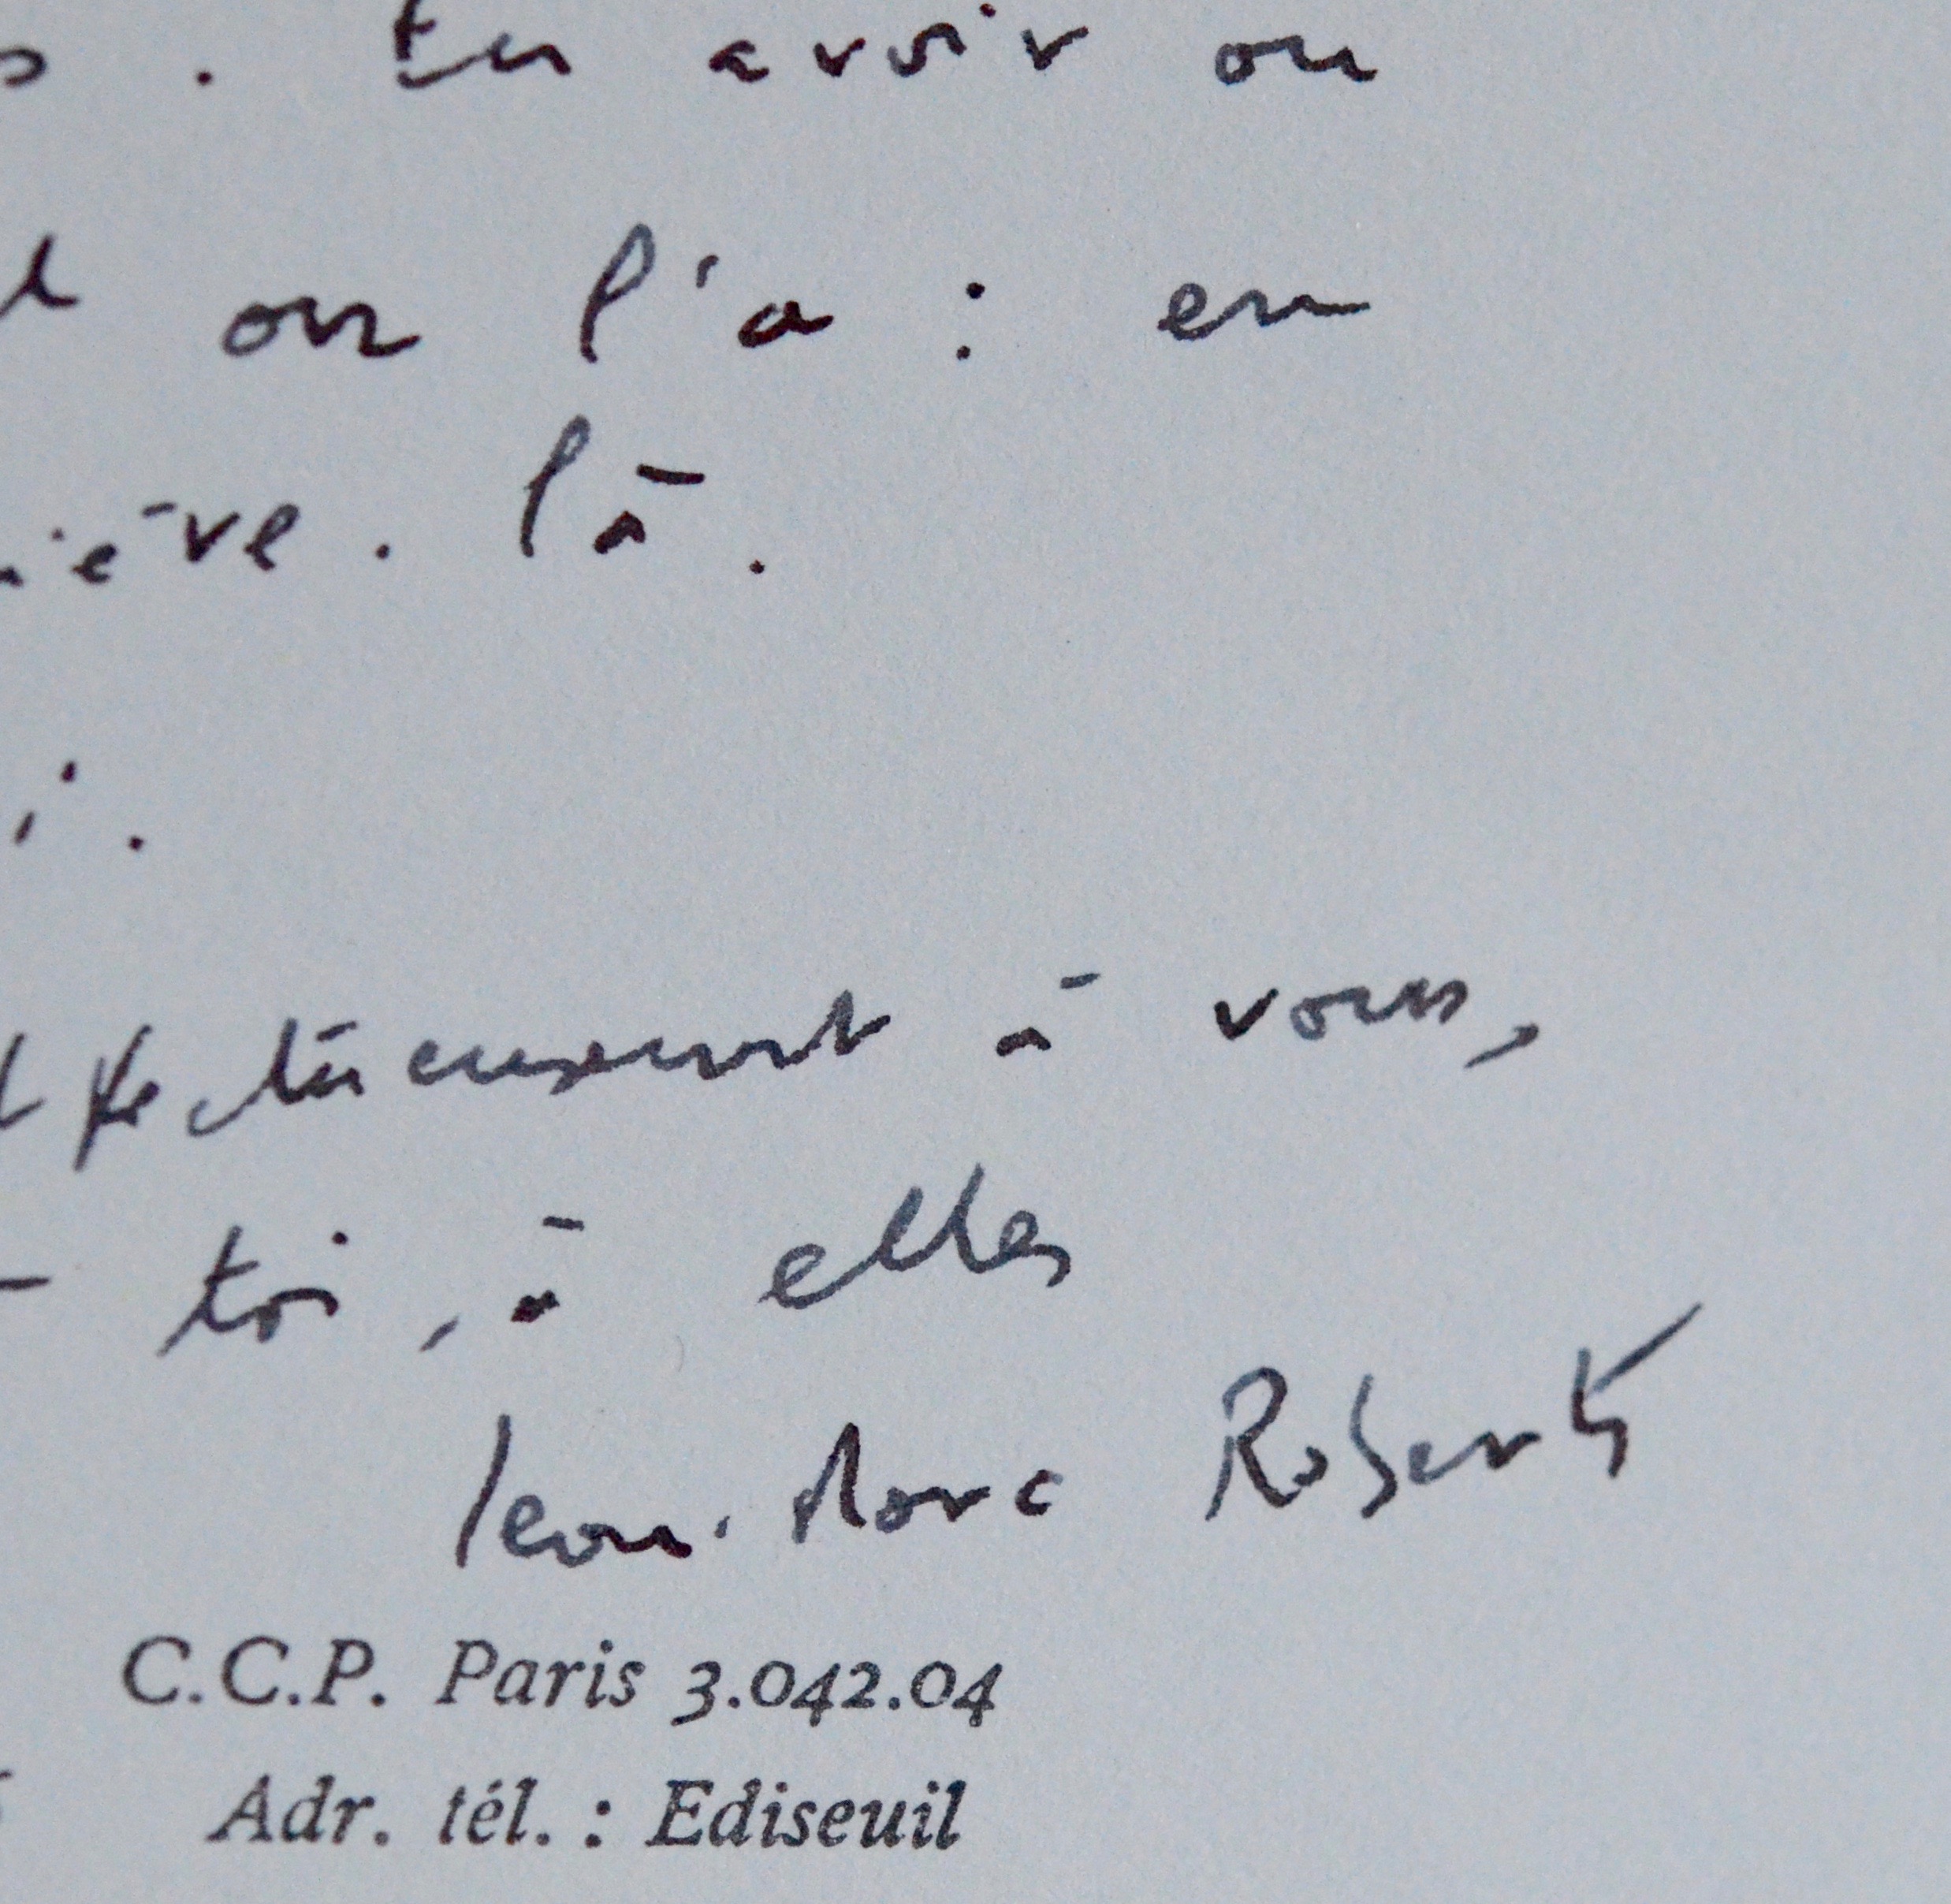 . En avoir ou
on l'a : en
ière. là.
i.
ffectueusement à vous,
toi, à elles
Jean-Marc Roberts
C.C.P. Paris 3.042.04
Adr. tél. : Ediseuil